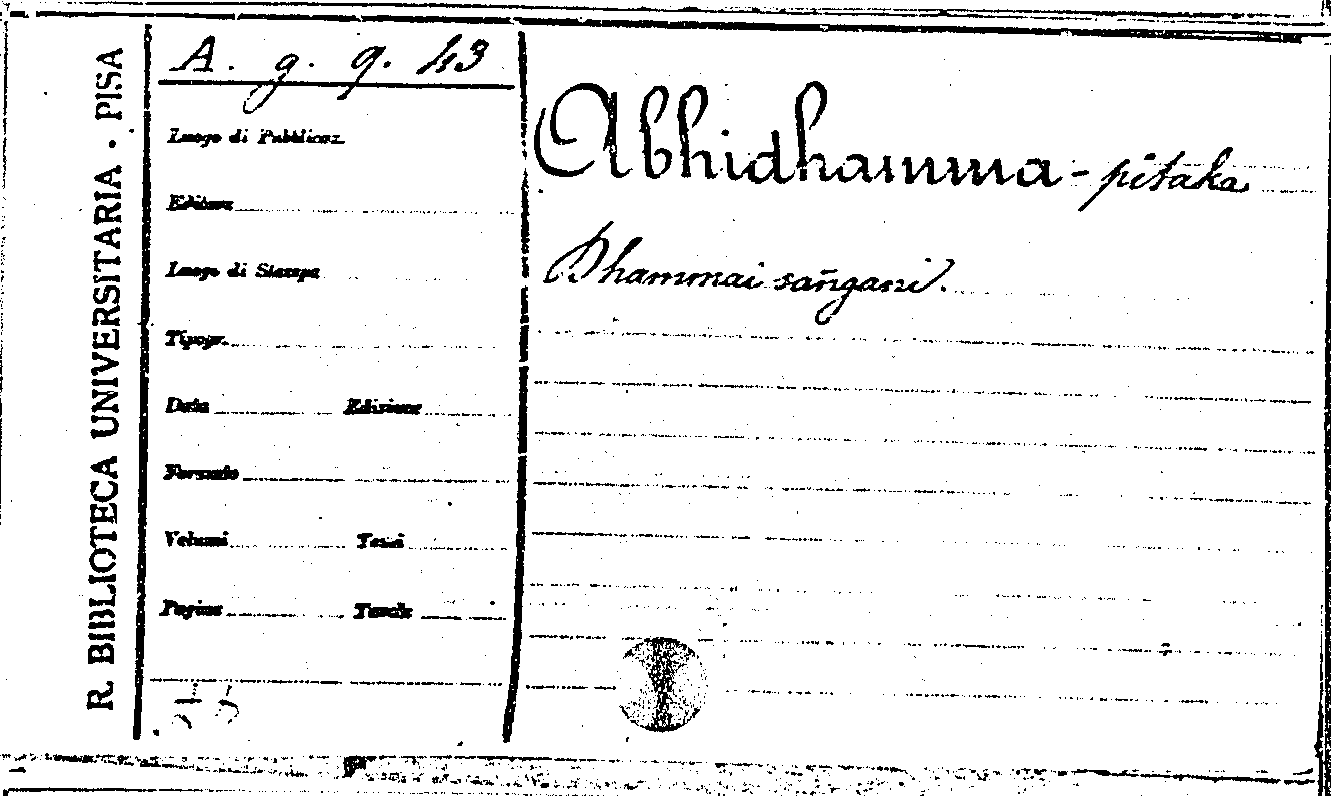 R. BIBLIOTECA UNIVERSITARIA · PISA
A. g. g. 43
Luogo di Pubblicaz.
Editore
Luogo di Stampa
Tipogr.
Data Edizione
Formato
Volumi Tomi
Pagine Tavole
Abhidhamma-pitaka
Dhammai sañgani.